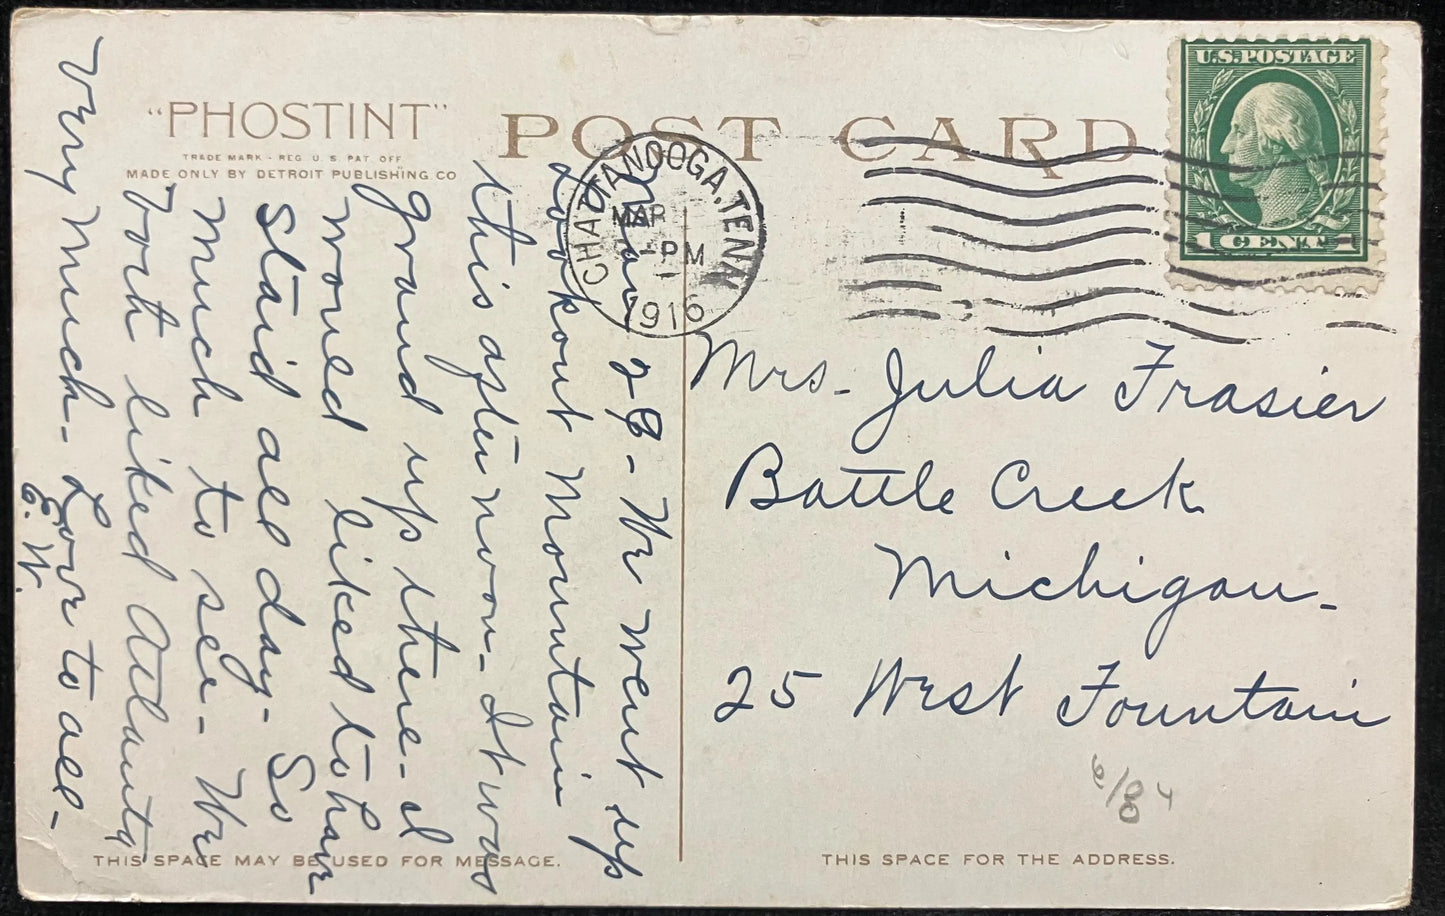 "PHOSTINT"
TRADE MARK - REG. U.S. PAT. OFF.
MADE ONLY BY DETROIT PUBLISHING CO
POST CARD
CHATTANOOGA, TENN
MAR
-PM
1916
U.S. POSTAGE
1 CENT 1
Mar 28 - We went up
Lookout Mountain
this afternoon - It was
grand up there - I
would liked to have
staid all day - So
much to see - We
both liked Atlanta
very much - Love to all -
E.W.
Mrs - Julia Frasier
Battle Creek
Michigan -
25 West Fountain
6/84
THIS SPACE MAY BE USED FOR MESSAGE.
THIS SPACE FOR THE ADDRESS.